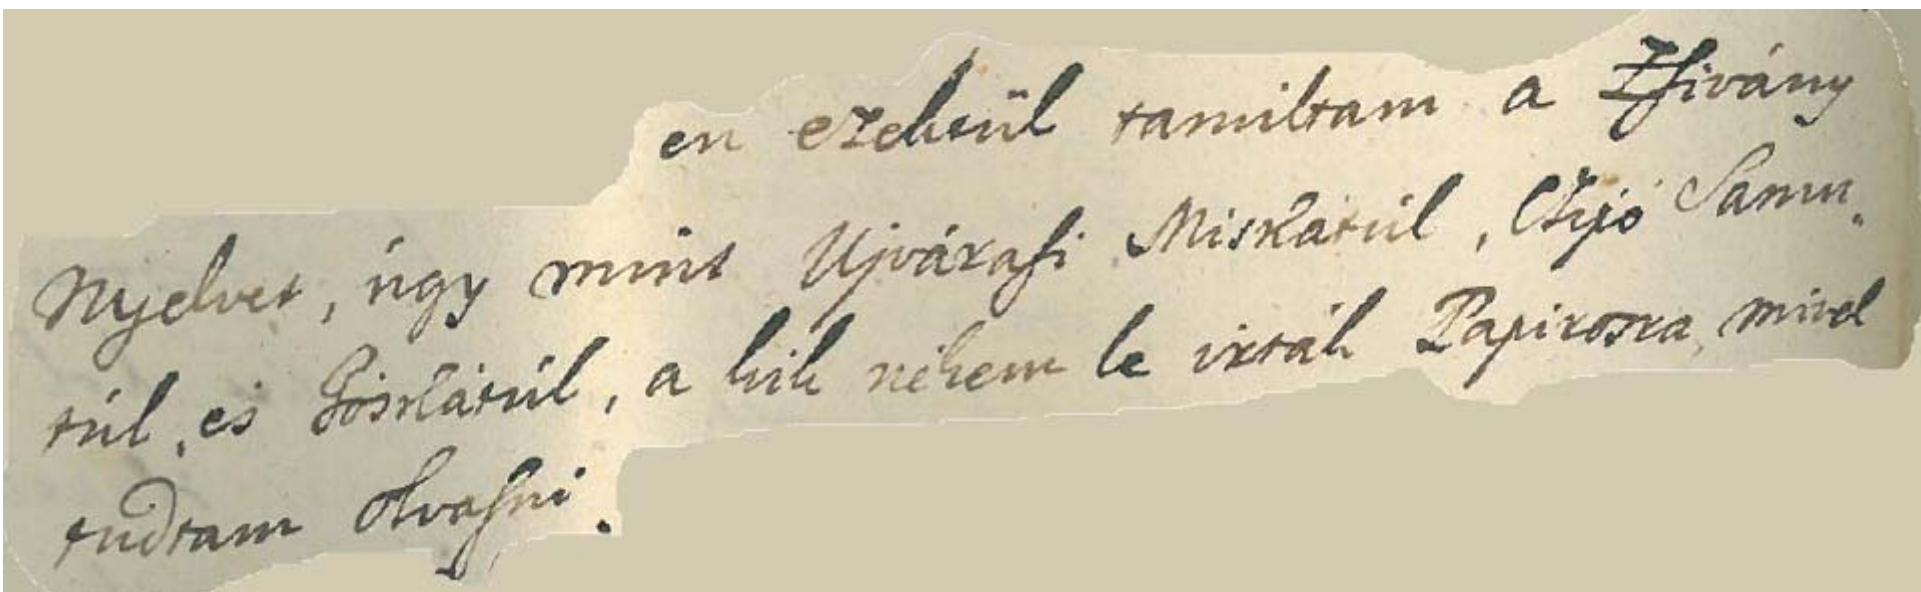 en ezektül tanultam a Zsivány
Nyelvet, úgy mint Ujvárasi Miskátúl, Czijó Samu
túl, es Jóskátúl, a kik nékem le irták Papirosra, mivel
tudtam olvasni.